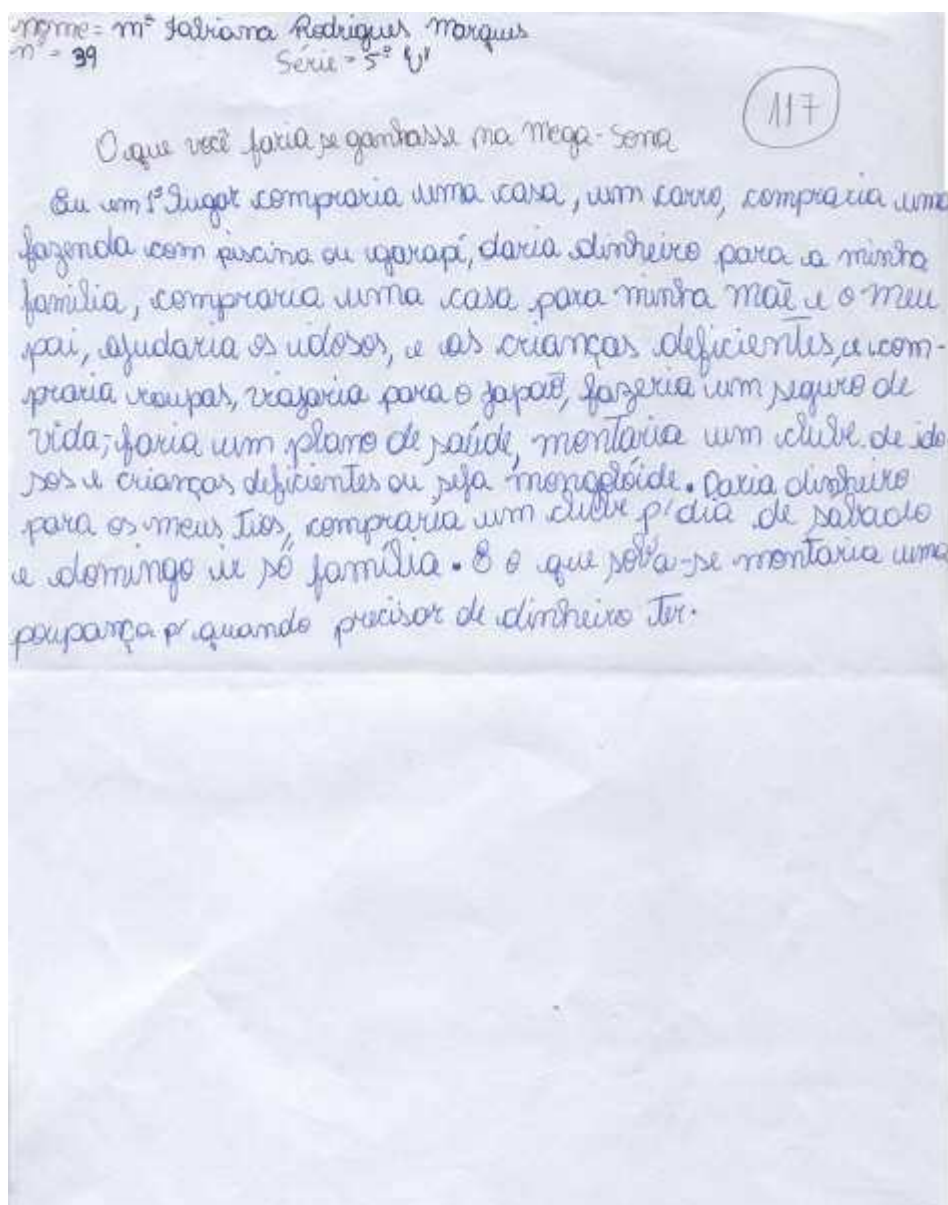 nome = mª Fabiana Rodrigues Marques
nº = 39 Série = 5ª "U"
117
O que você faria se ganhasse na Mega-Sona
Eu em 1º lugar compraria uma casa, um carro, compraria uma
fazenda com piscina ou igarapí, daria dinheiro para a minha
família, compraria uma casa para minha mãe e o meu
pai, ajudaria os idosos, e as crianças deficientes, e com-
praria roupas, viajaria para o japaõ, fazeria um seguro de
vida, faria um plano de saúde, montaria um clube de ido
sos e crianças deficientes ou seja mongolóide. Daria dinheiro
para os meus tios, compraria um clube p/ dia de sabado
e domingo ir só família. E o que soba-se montaria uma
poupança p/ quando precisar de dinheiro ter.